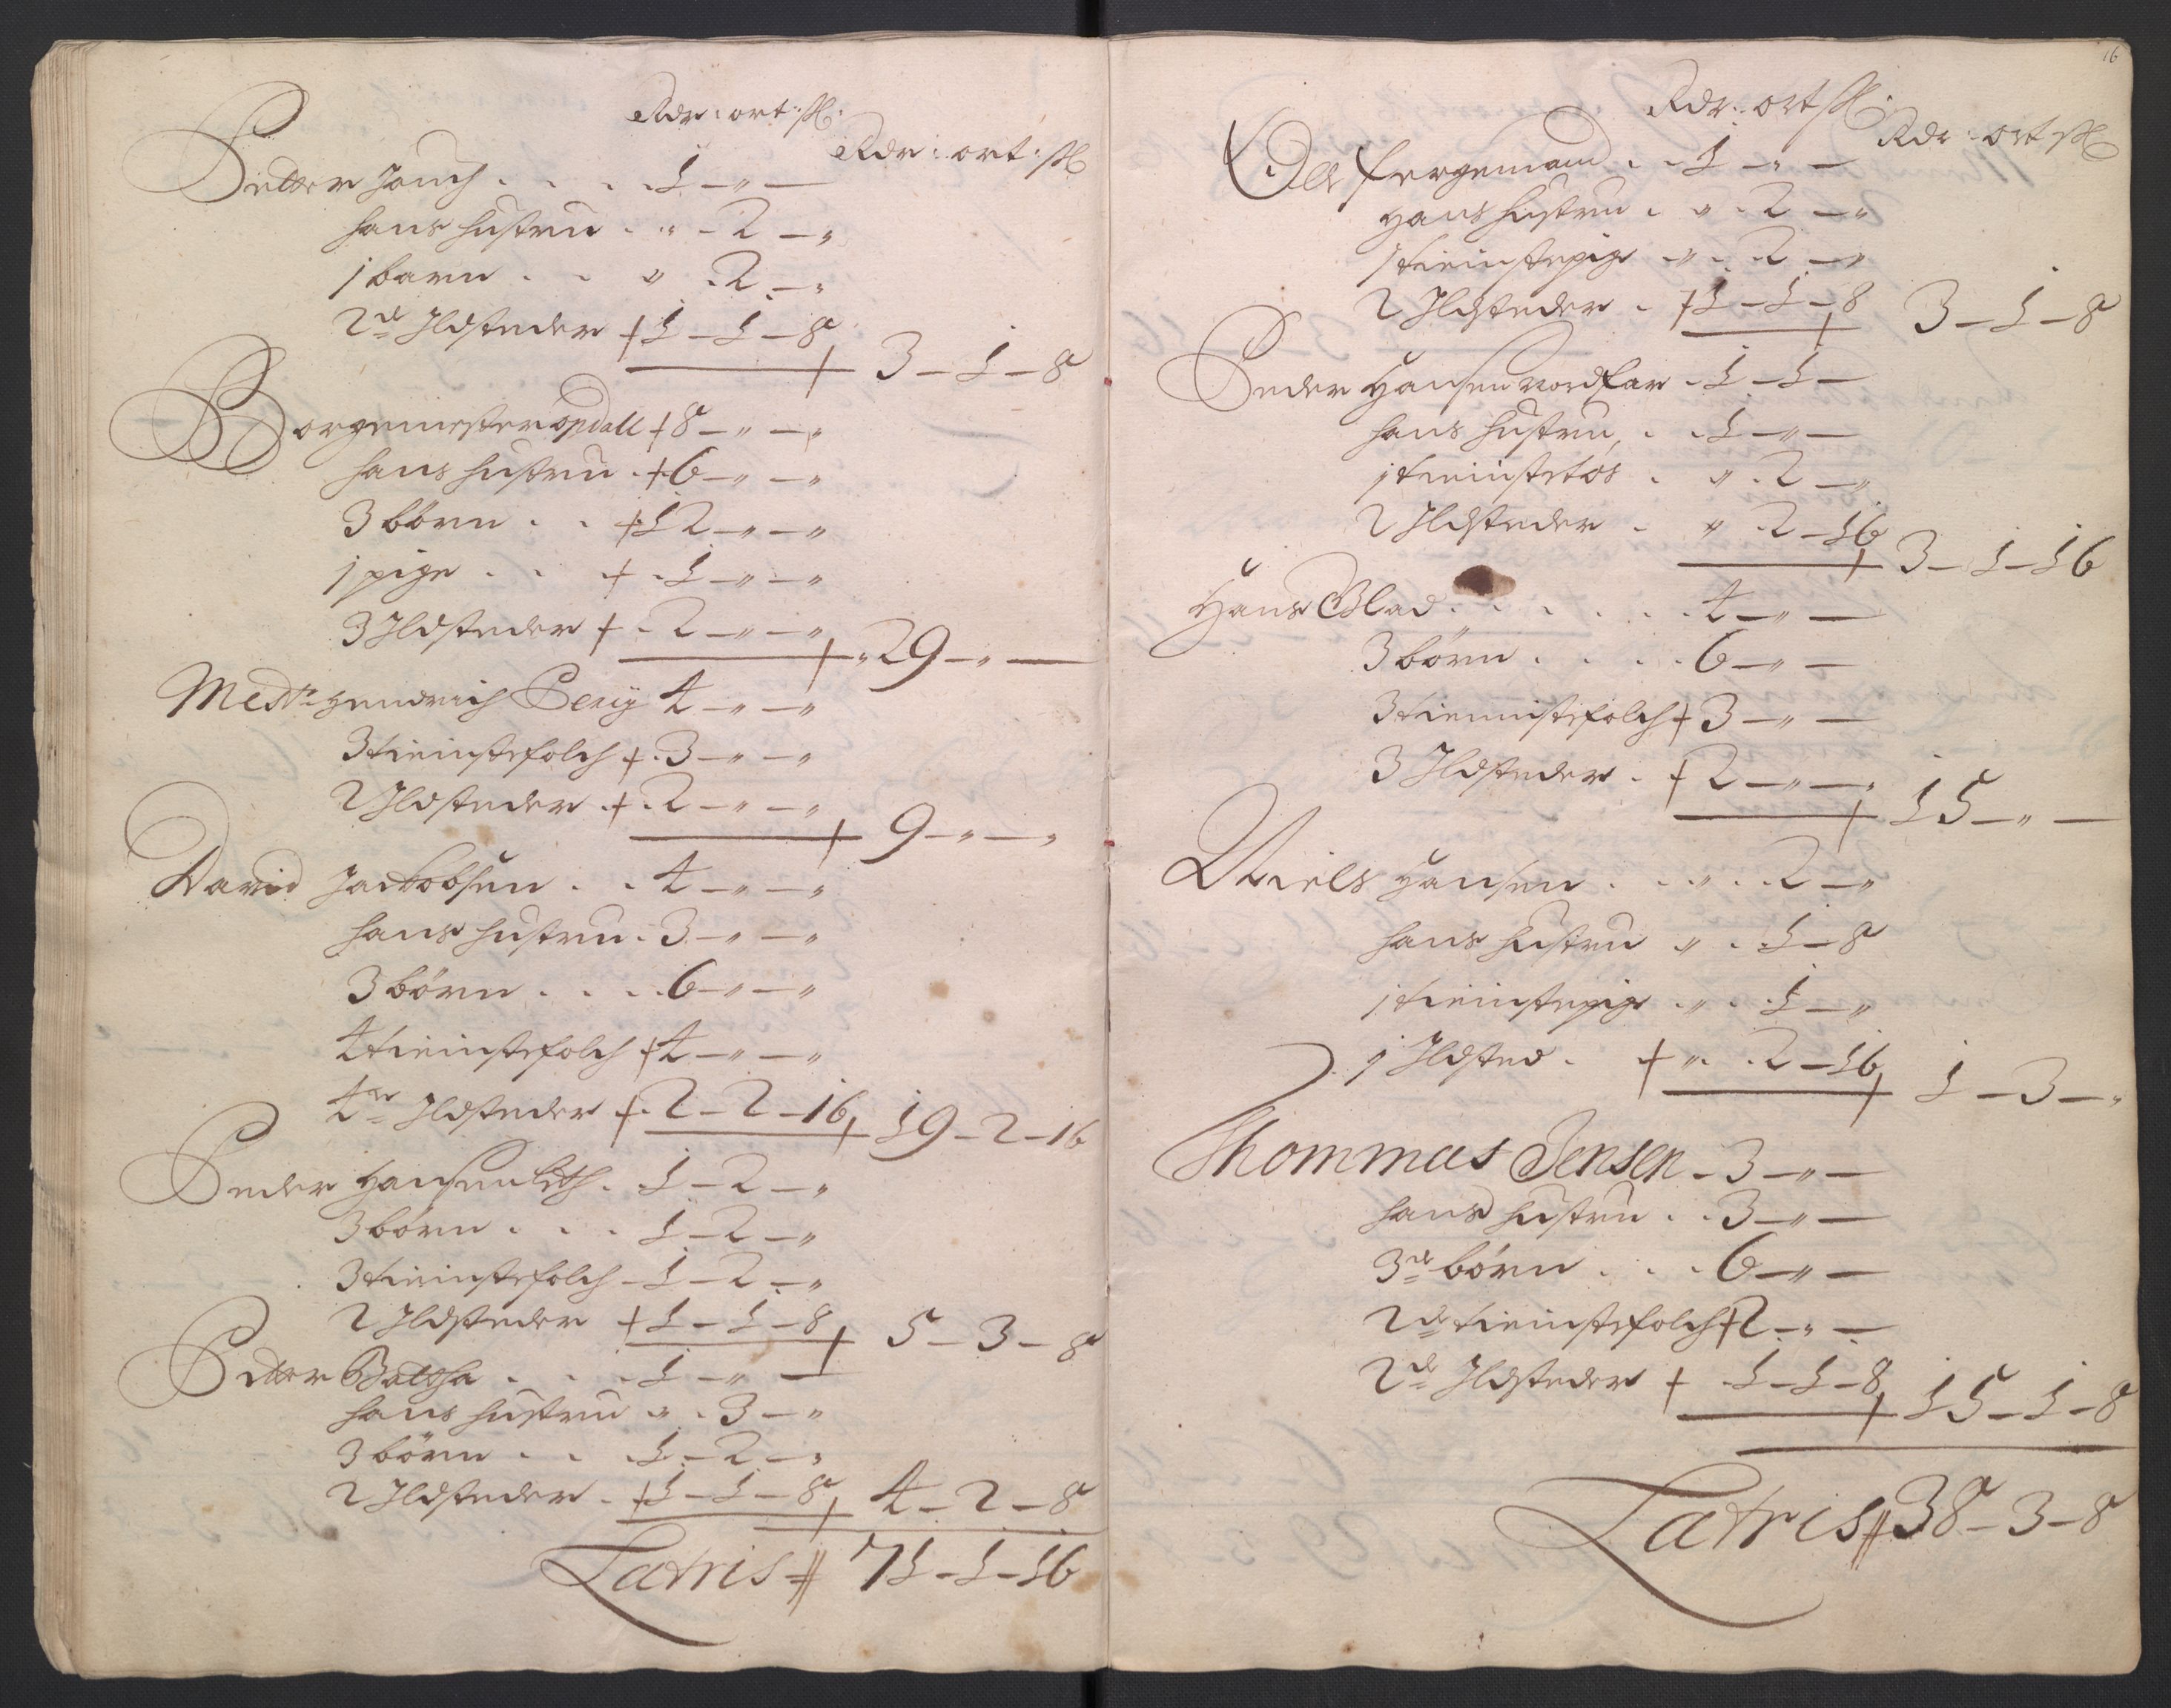 Rdr: ort: ß:
Rdr: ort: ß
Petter Jauch . . . . 1 — " —
hans hustru . " . 2 — "
1 barn . . " . 2 — "
2de Ildsteder + 1 — 1 — 8
3 — 1 — 8
Borgemester opdall + 8 — " — "
hans hustru . + 6 — " — "
3 børn . . + 12 — " — "
1 pige . . + . 1 — " — "
3 Ildsteder + . 2 — " — "
29 — " —
Mestr hendrich 4 — " — "
3 tieinstefolch + . 3 — " — "
2 Ildsteder . + . 2 — " — "
9 — " — "
David Jackobsen . . 4 — " — "
hans hustru . 3 — " — "
3 børn . . . . 6 — " — "
4 tieinstefolch + 4 — " — "
4er Ildsteder + . 2 — 2 — 16 19 — 2 — 16
Peder Hansen . 1 — 2 — "
3 børn . . . 1 — 2 — "
3 tieinstefolch — 1 — 2 — "
2 Ildsteder + 1 — 1 — 8 5 — 3 — 8
Petter Baltzha . . . 1 — " —
hans hustru " . 3 — "
3 børn . . . 1 — 2 — "
2 Ildsteder . + 1 — 1 — 8 4 — 2 — 8
Latris 71 — 1 — 16
16
Rdr: ort ß
Rdr: ort ß
Olle fergemand . . 1 — " —
Hans hustru . " . 2 — "
1 tieinstepige " . . 2 — "
2 Ildsteder . + 1 — 1 — 8 3 — 1 — 8
Peder Hansen nordfar . 1 — 1 —
hans hustru . . 1 — " —
1 tieinstetøs . " . 2 — "
2 Ildsteder . " . 2 — 16
3 — 1 — 16
Hans Blad . . . . . . 4 — " —
3 børn . . . . 6 — " —
3 tiennistefolch + 3 — " —
3 Ildsteder . + 2 — " — "
15 — " —
Niels Hansen . . " . . 2 — "
hans hustru " . 1 — 8
1 tieinstepige . " . . 1 — "
1 Ildsted . + " . . 2 — 16 1 — 3 — "
Thommas Jensen — 3 — " —
hans hustru . . 3 — " —
3de børn . . . 6 — " —
2de tieinstefolch + 2 — " —
2de Ildsteder + . 1 — 1 — 8 15 — 1 — 8
Latris 38 — 3 — 8